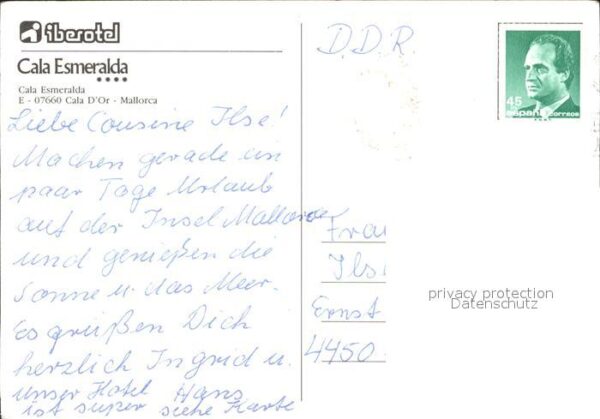 iberotel
Cala Esmeralda
Cala Esmeralda
E - 07660 Cala D'Or - Mallorca
Liebe Cousine Ilse!
Machen gerade ein
paar Tage Urlaub
auf der Insel Mallorca
und genießen die
Sonne u. das Meer.
Es grüßen Dich
herzlich Ingrid u.
Hans
unser Hotel
ist super siehe Karte
D.D.R.
45
españa correos
Frau
Ils
Ernst
4450
privacy protection
Datenschutz